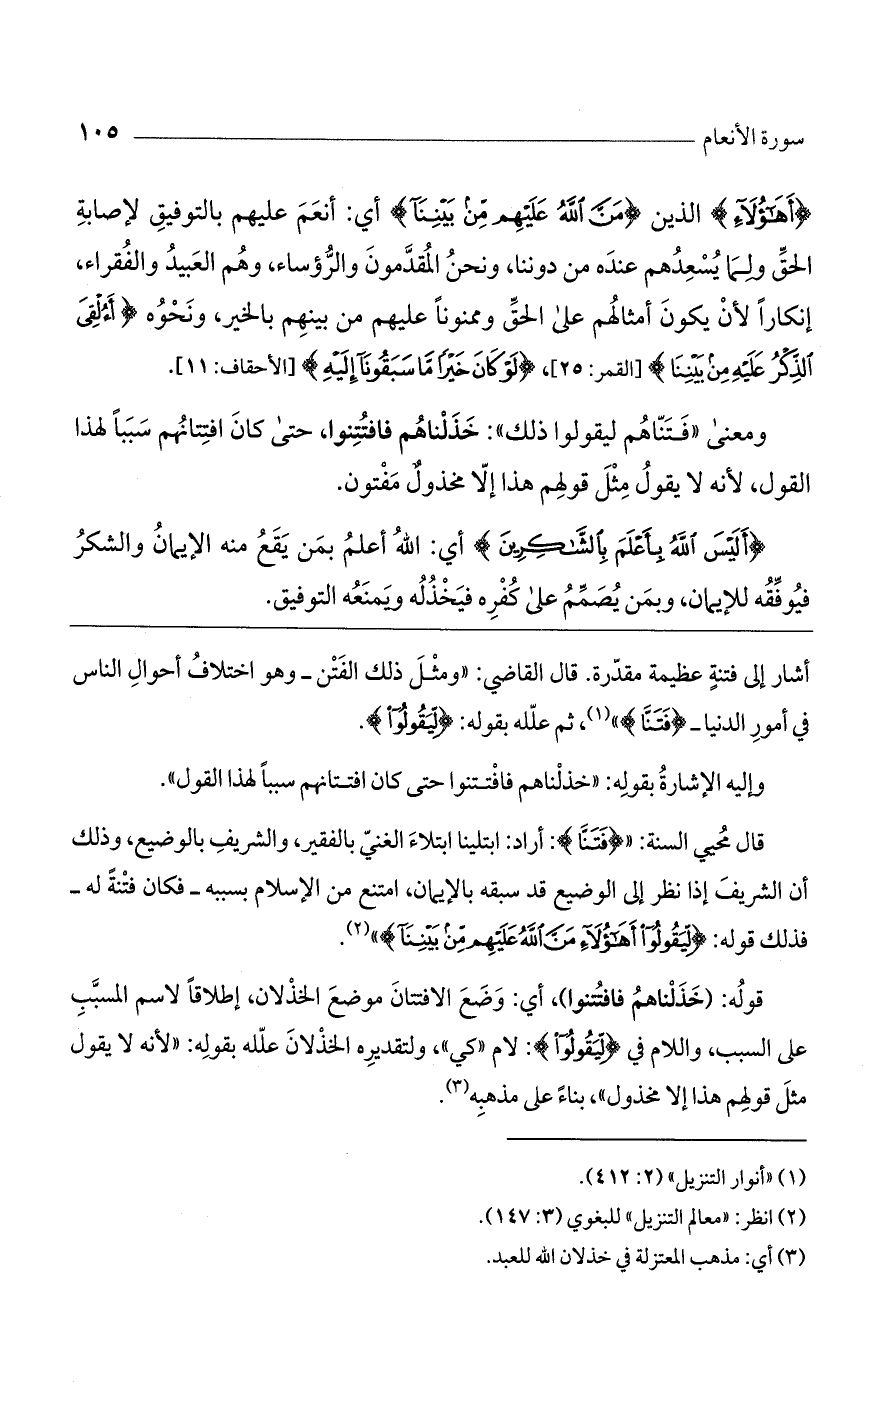 سورة الأنعام ١٠٥
﴿أَهَٰٓؤُلَآءِ﴾ الذين ﴿مَنَّ ٱللَّهُ عَلَيْهِم مِّنۢ بَيْنِنَآ﴾ أي: أنعَمَ عليهم بالتوفيقِ لإصابةِ
الحقِّ ولِـمَا يُسْعِدُهم عندَه من دوننا، ونحنُ المُقدَّمونَ والرُّؤساء، وهُم العَبيدُ والفُقراء،
إنكاراً لأنْ يكونَ أمثالُهم علىٰ الحقِّ وممنوناً عليهم من بينِهِم بالخير، ونَحْوُه ﴿أَءُلْقِىَ
ٱلذِّكْرُ عَلَيْهِ مِنۢ بَيْنِنَا﴾ [القمر: ٢٥]، ﴿لَوْ كَانَ خَيْرًا مَّا سَبَقُونَآ إِلَيْهِ﴾ [الأحقاف: ١١].
ومعنىٰ «فَـتَنّاهُم ليقولوا ذلك»: خَذَلْناهُم فافتُتِنوا، حتىٰ كانَ افتِتانُهم سَبَباً لهذا
القول، لأنه لا يقولُ مِثْلَ قولهِم هذا إلّا مخذولٌ مَفْتون.
﴿أَلَيْسَ ٱللَّهُ بِأَعْلَمَ بِٱلشَّٰكِرِينَ﴾ أي: اللهُ أعلمُ بمَن يَقَعُ منه الإيمانُ والشكرُ
فيُوفِّقُه للإيمان، وبمَن يُصَمِّمُ علىٰ كُفْرِه فيَخْذُلُه ويَمنَعُه التوفيق.
أشار إلى فتنةٍ عظيمة مقدّرة. قال القاضي: «ومثْـلَ ذلك الفَتْن ـ وهو اختلافُ أحوالِ الناس
في أمورِ الدنيا ـ ﴿فَتَنَّا﴾»(١)، ثم علّله بقوله: ﴿لِّيَقُولُوٓا۟﴾.
وإليه الإشارةُ بقولِه: «خذلْناهم فافْتـتنوا حتى كان افتـتانهم سبباً لهذا القول».
قال مُحيي السنة: «﴿فَتَنَّا﴾: أراد: ابتلينا ابتلاءَ الغنيّ بالفقير، والشريفِ بالوضيع، وذلك
أن الشريفَ إذا نظر إلى الوضيع قد سبقه بالإيمان، امتنع من الإسلام بسببه ـ فكان فتْنةً له ـ
فذلك قوله: ﴿لِّيَقُولُوٓا۟ أَهَٰٓؤُلَآءِ مَنَّ ٱللَّهُ عَلَيْهِم مِّنۢ بَيْنِنَآ﴾»(٢).
قولُه: (خَذَلْناهمُ فافتُتنوا)، أي: وَضَعَ الافتتانَ موضعَ الخذْلان، إطلاقاً لاسم المسبَّبِ
على السبب، واللام في ﴿لِّيَقُولُوٓا۟﴾: لام «كي»، ولتقديرِه الخذلانَ علّله بقولِه: «لأنه لا يقول
مثلَ قولهِم هذا إلا مخذول»، بناءً على مذهبِه(٣).
(١) «أنوار التنزيل» (٢: ٤١٢).
(٢) انظر: «معالم التنزيل» للبغوي (٣: ١٤٧).
(٣) أي: مذهب المعتزلة في خذلان الله للعبد.